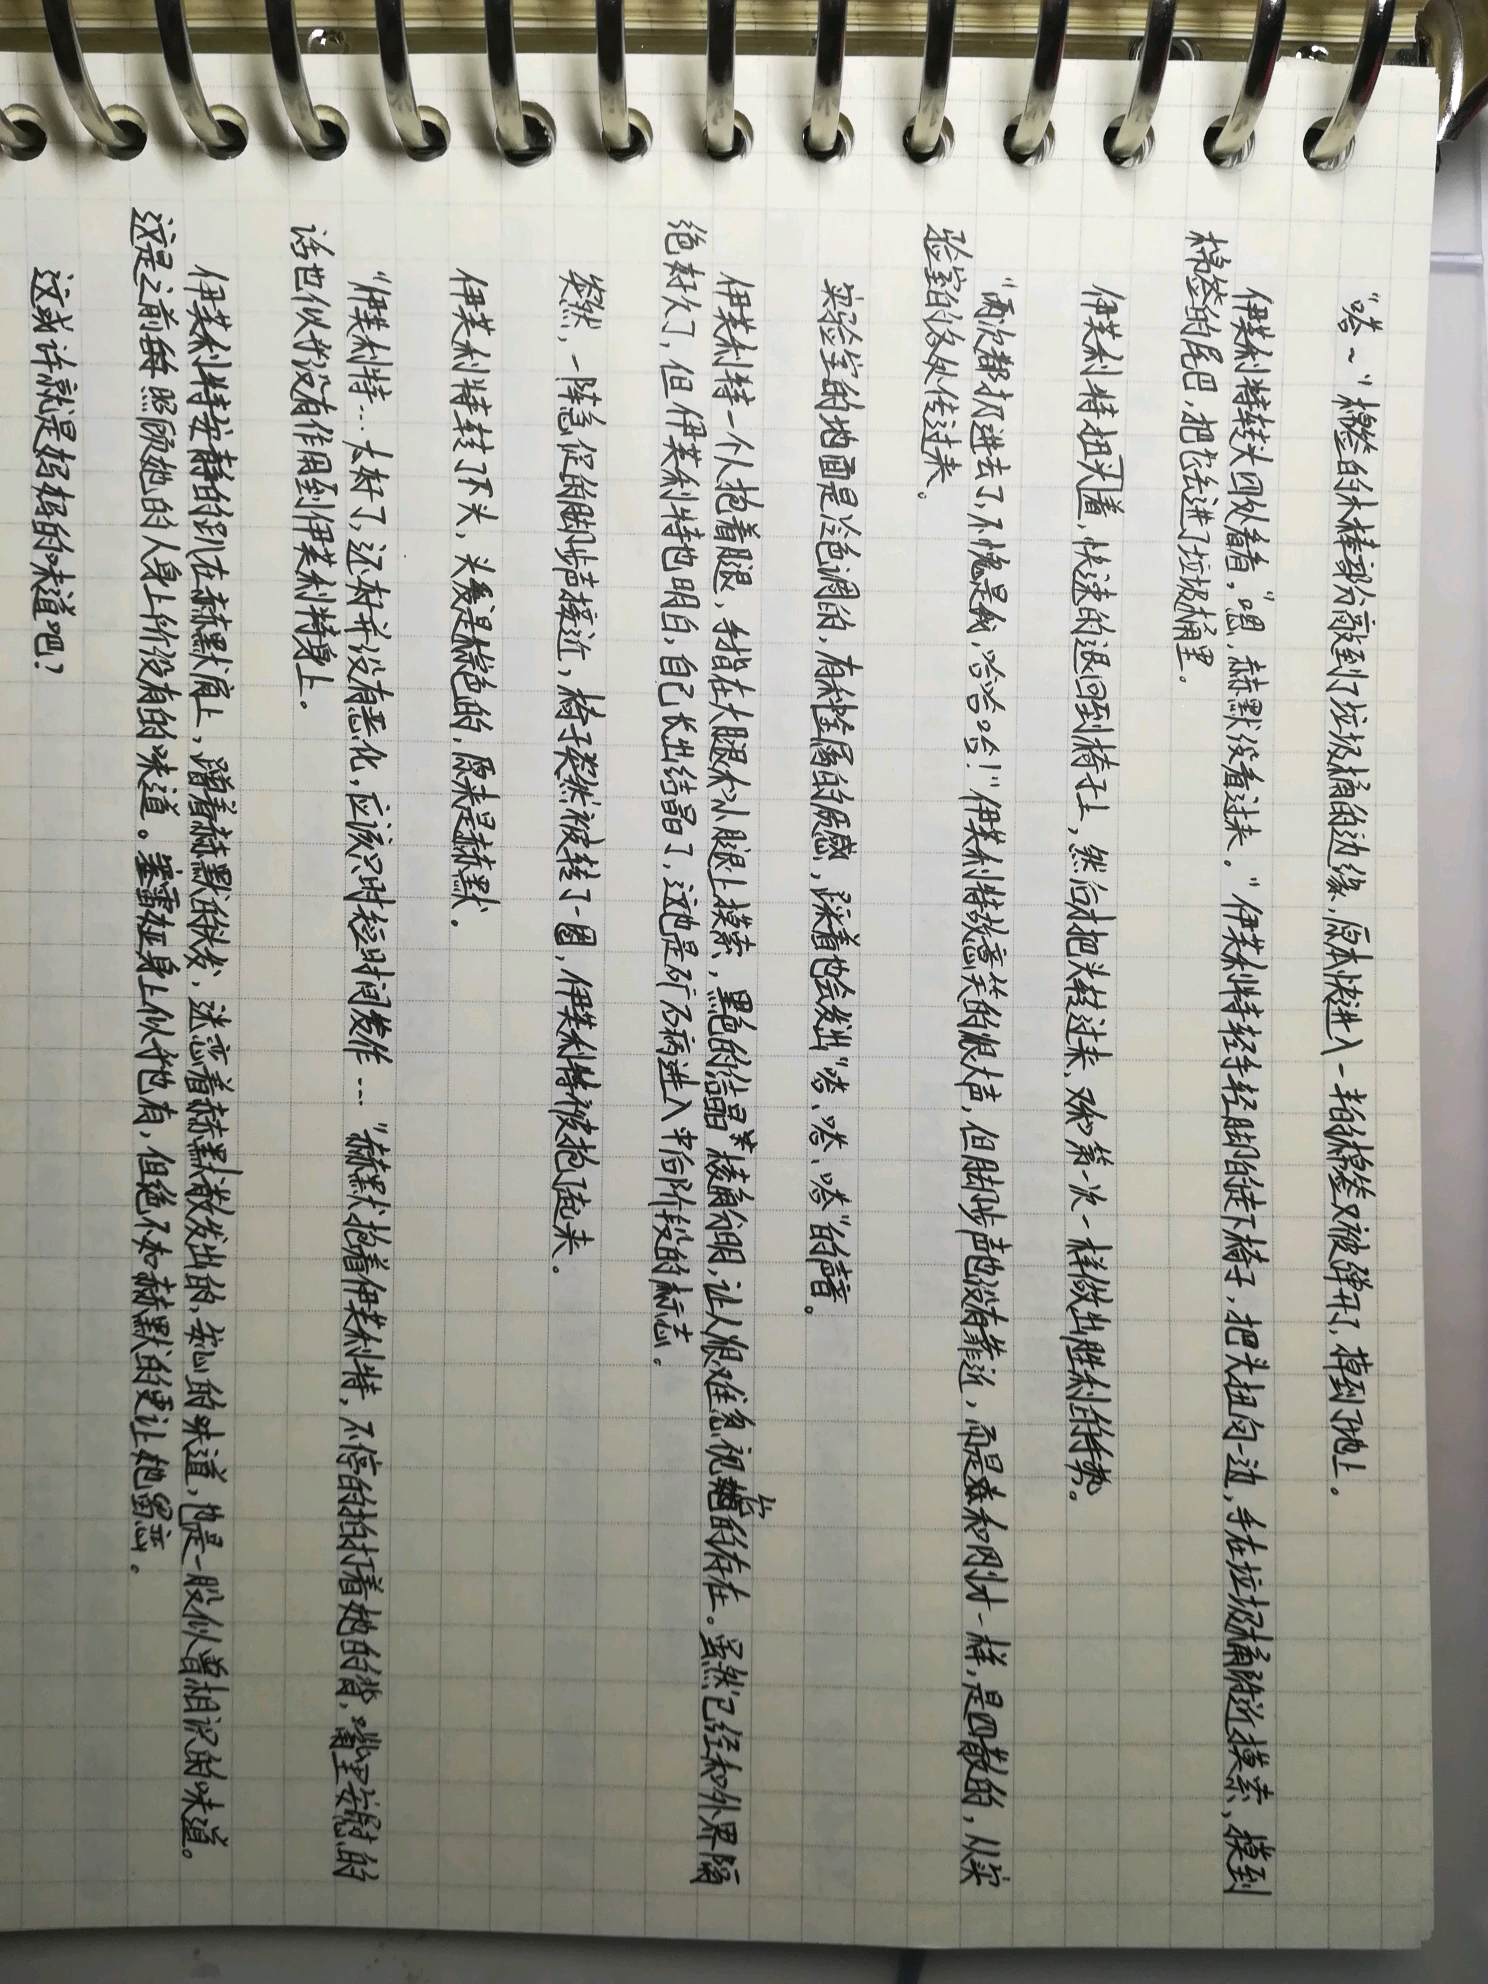 “嗒~”棉签的木棒部分敲到了垃圾桶的边缘,原本快进入一半的棉签又被弹开了,掉到了地上。
伊芙利特转头四处看看,“嗯,赫默没看过来。”伊芙利特轻手轻脚的走下椅子,把头扭向一边,手在垃圾桶附近摸索,摸到
棉签的尾巴,把它丢进了垃圾桶里。
伊芙利特扭头着,快速的退回到椅子上,然后才把头转过来,又和第一次一样做出胜利的手势。
“两次都扔进去了,不愧是我,哈哈哈!”伊芙利特故意笑的很大声,但脚步声也没有靠近,而是和刚才一样,是四散的,从实
验室的各处传过来。
实验室的地面是冷色调的,有种金属的质感,踩着也会发出“嗒、嗒、嗒”的声音。
伊芙利特一个人抱着腿,手指在大腿和小腿上摸索,黑色的结晶棱角分明,让人很难忽视它的存在。虽然已经和外界隔
绝好久了,但伊芙利特也明白,自己长出结晶了,这也是矿石病进入中后阶段的标志。
突然,一阵急促的脚步声接近,椅子突然被转了一圈,伊芙利特被抱了起来。
伊芙利特转了下头,头发是棕色的,原来是赫默。
“伊芙利特…太好了,还好并没有恶化,应该只时短时间发作……”赫默抱着伊芙利特,不停的拍打着她的背,嘴里安慰的
话也似乎没有作用到伊芙利特身上。
伊芙利特安静的趴在赫默肩上,蹭着赫默的头发,迷恋着赫默散发出的,安心的味道,也是一股似曾相识的味道。
这是之前每照顾她的人身上所没有的味道。塞雷娅身上似乎也有,但绝不如赫默的更让她留恋。
这或许就是妈妈的味道吧?